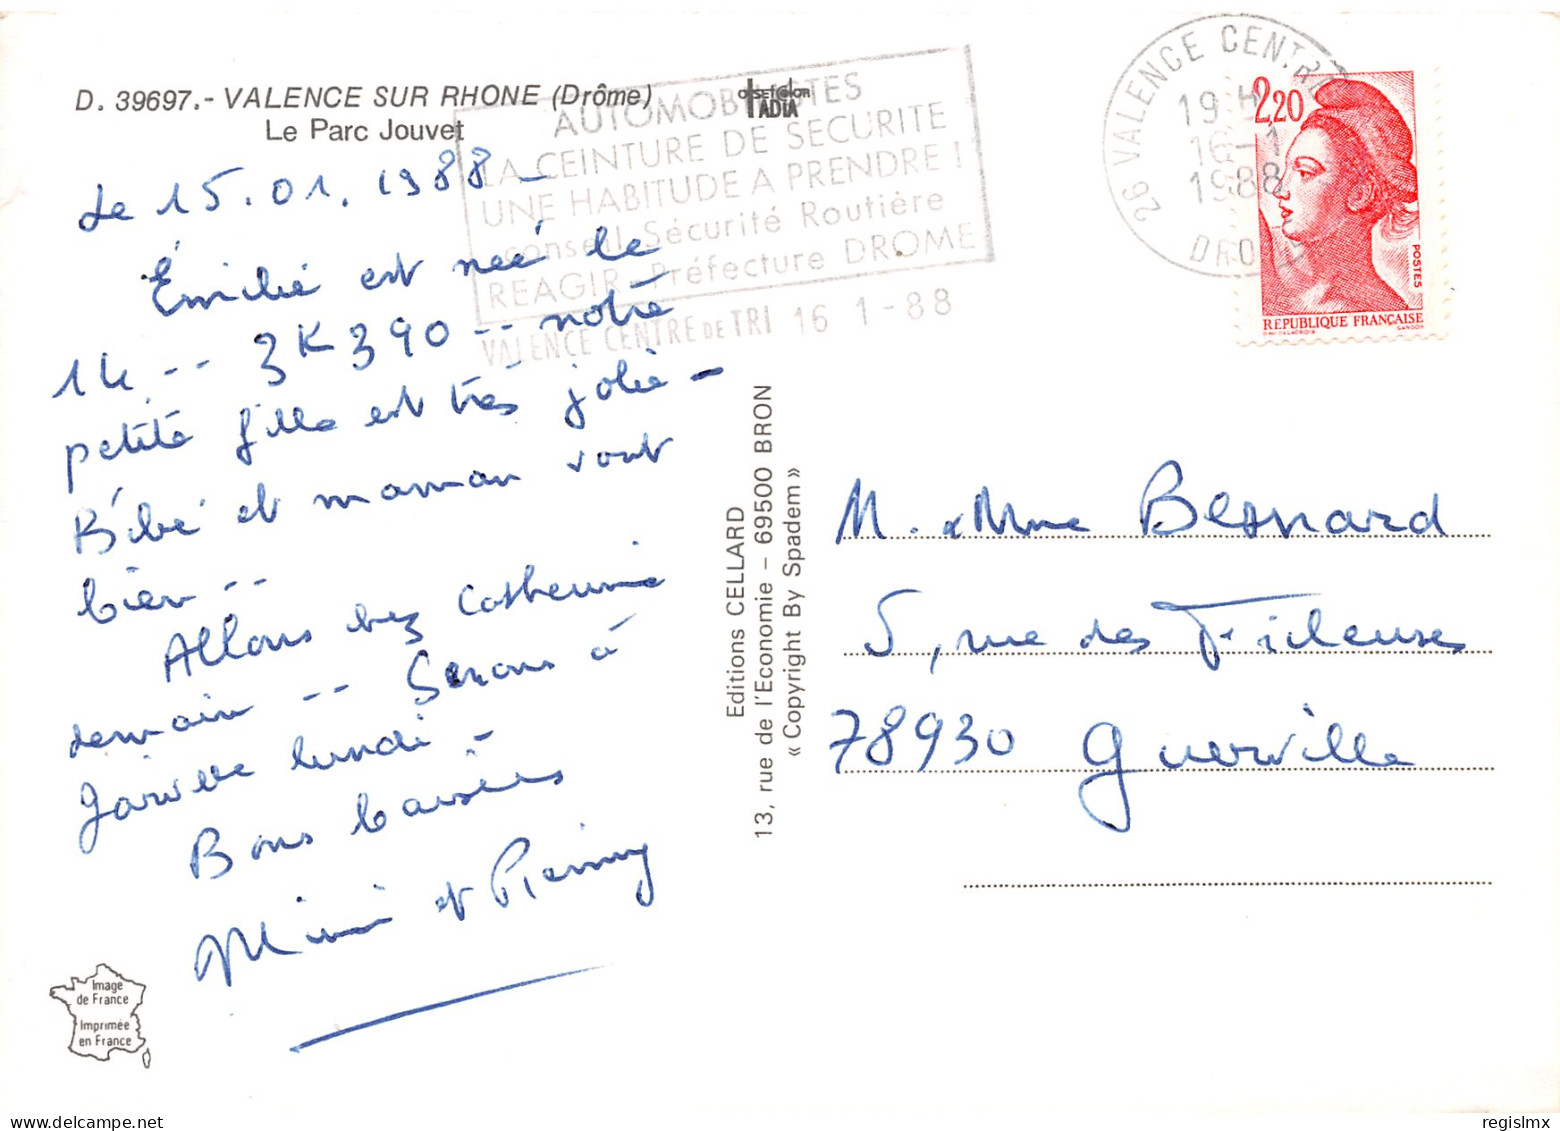 D. 39697.- VALENCE SUR RHONE (Drôme)
Le Parc Jouvet
Le 15.01.1988 -
Émilie est née le
14 -- 3K390 -- notre
petite fille est très jolie -
Bébé et maman vont
bien --
Allons chez Catherine
demain -- Serons à
lundi -
Bons baisers
Mimi et
AUTOMOBILISTES
LA CEINTURE DE SECURITE
UNE HABITUDE A PRENDRE !
Conseil Sécurité Routière
REAGIR Préfecture DROME
VALENCE CENTRE DE TRI 16 1-88
OFFSETCOLOR
IADIA
26 VALENCE CENTRE
19 H
16-1
1988
DROME
2,20
POSTES
REPUBLIQUE FRANÇAISE
D'AP. DELACROIX GANDON
Editions CELLARD
13, rue de l'Economie – 69500 BRON
« Copyright By Spadem »
M. & Mme Besnard
5, rue des Fileuses
78930 Guerville
Image
de France
Imprimée
en France
regislmx